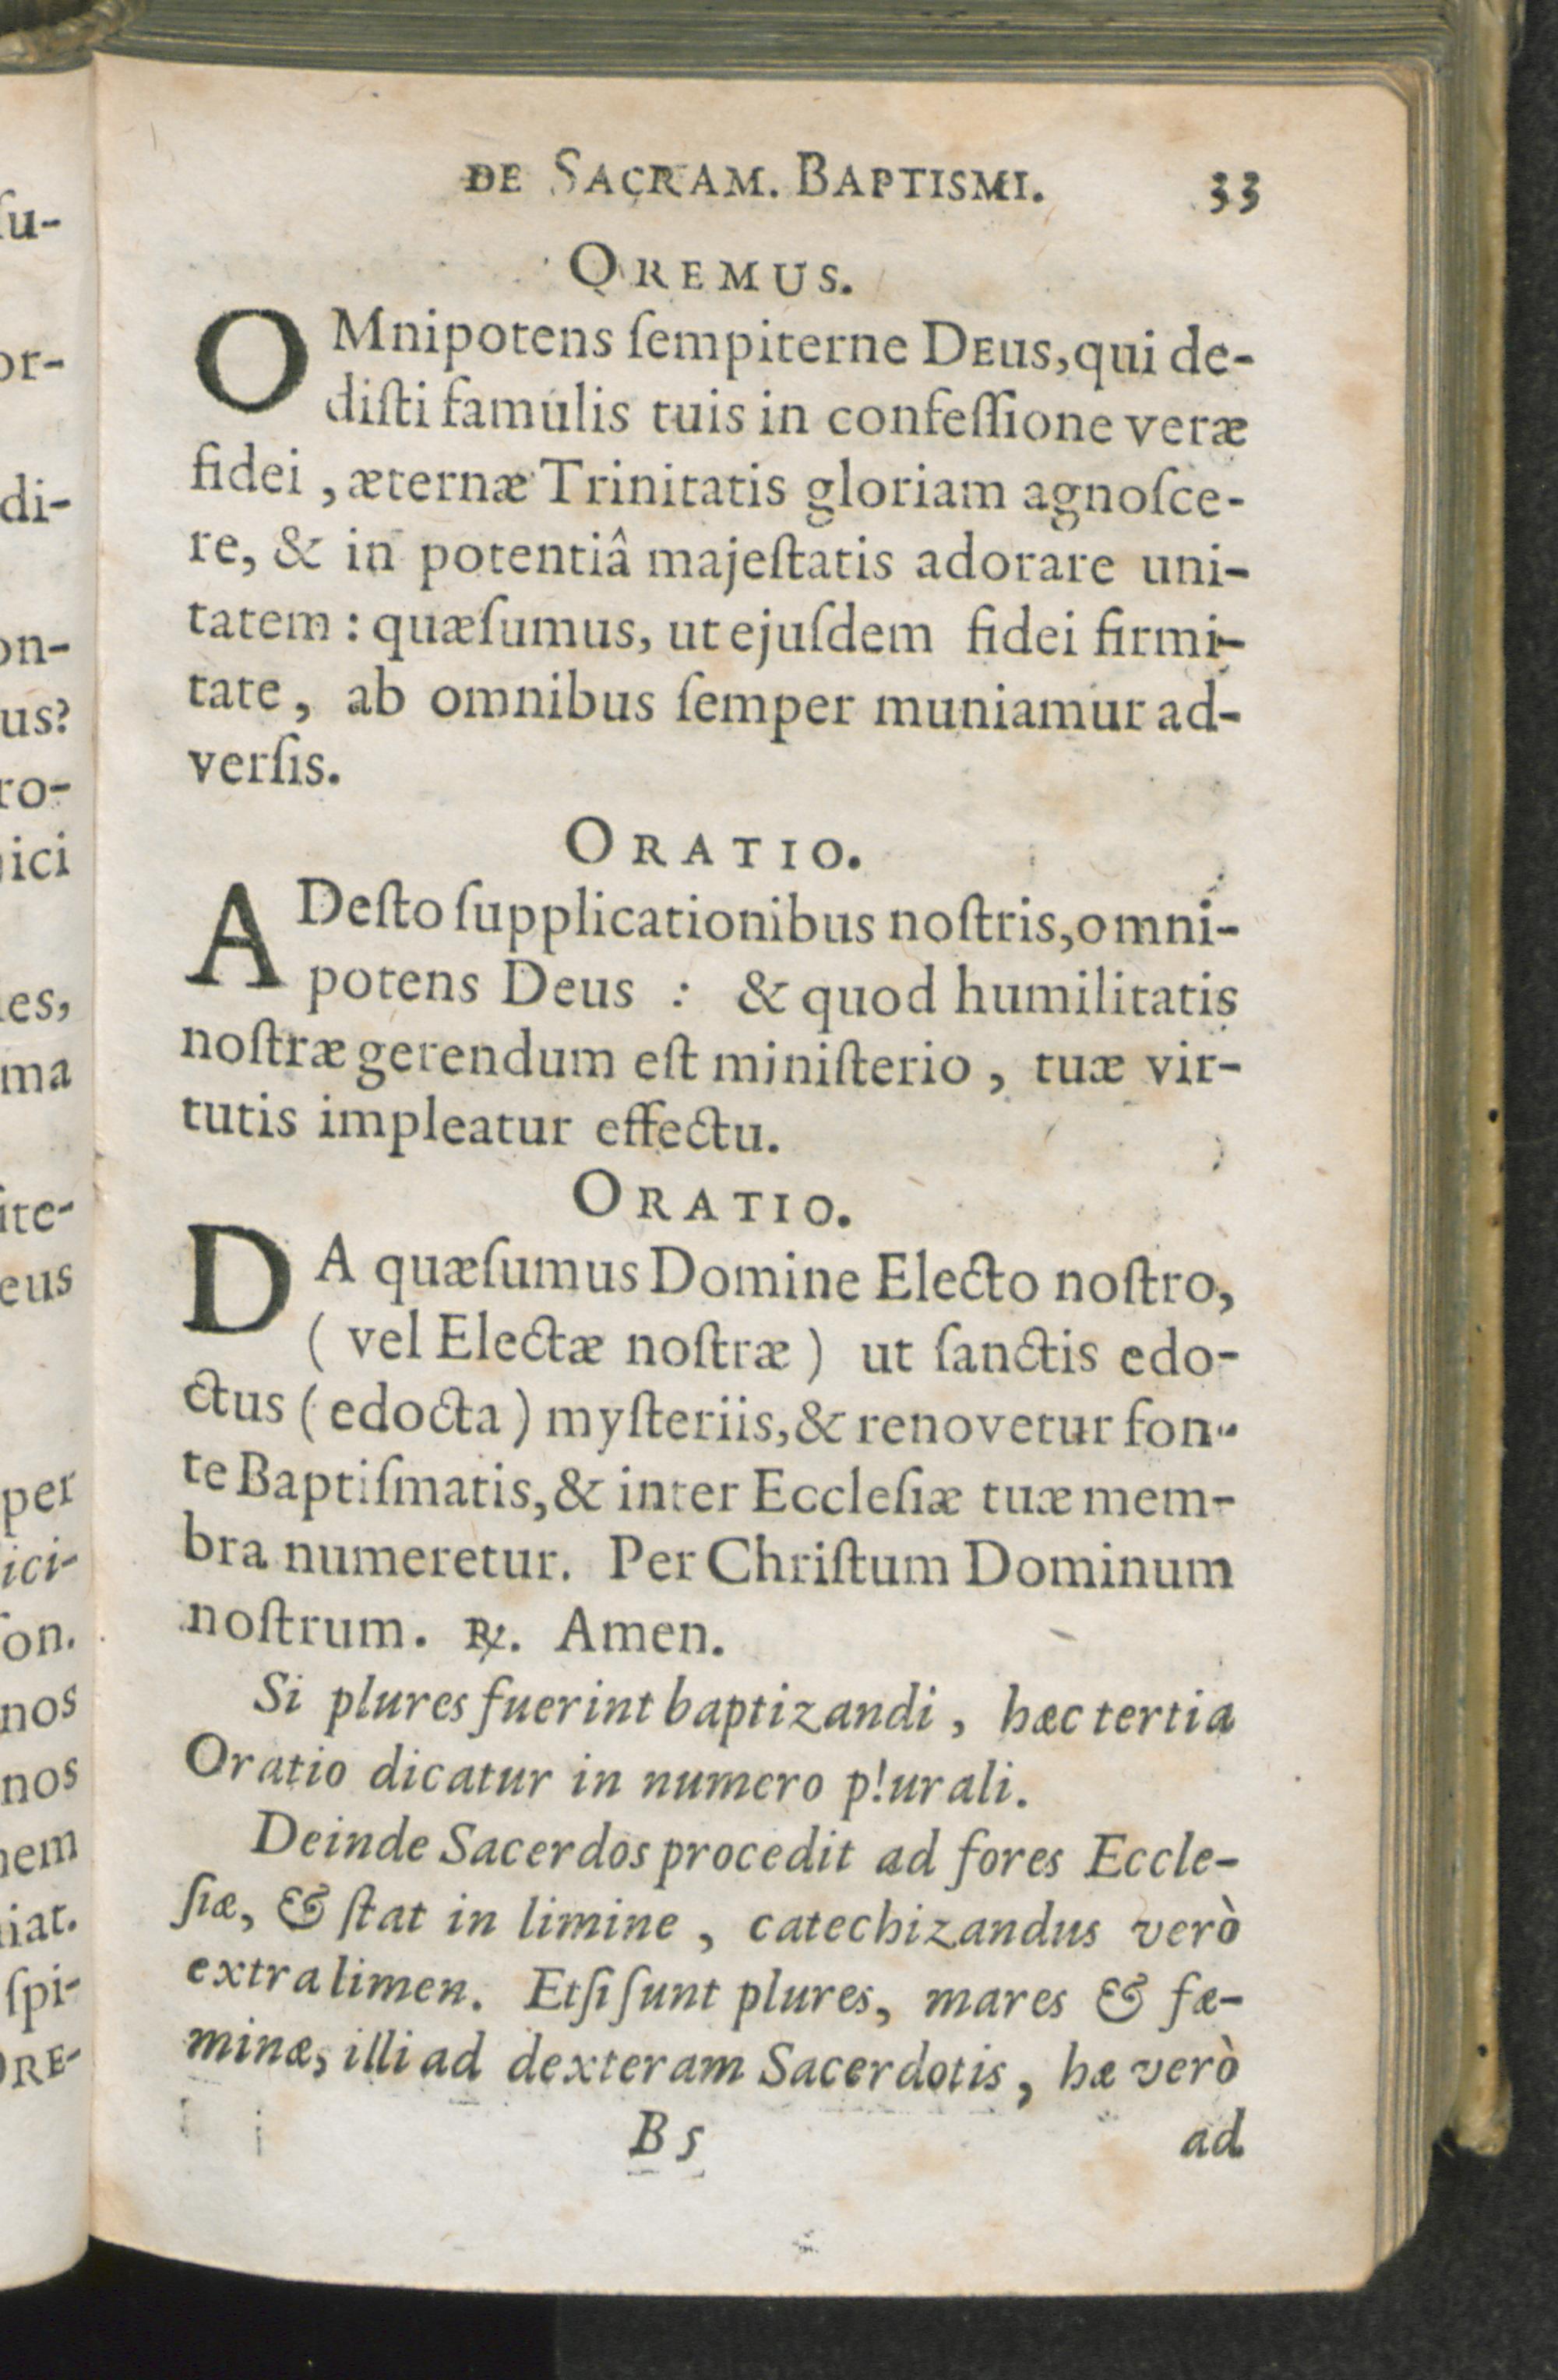 DE SACRAM. BAPTISMI. 33
OREMUS.
OMnipotens ſempiterne DEus, qui de-
diſti famulis tuis in confeſſione veræ
fidei, æternæ Trinitatis gloriam agnoſce-
re, & in potentiâ majeſtatis adorare uni-
tatem : quæſumus, ut ejuſdem fidei firmi-
tate, ab omnibus ſemper muniamur ad-
verſis.
ORATIO.
ADeſto ſupplicationibus noſtris, omni-
potens Deus : & quod humilitatis
noſtræ gerendum eſt miniſterio, tuæ vir-
tutis impleatur effectu.
ORATIO.
DA quæſumus Domine Electo noſtro,
( vel Electæ noſtræ ) ut ſanctis edo-
ctus ( edocta ) myſteriis, & renovetur fon-
te Baptiſmatis, & inter Eccleſiæ tuæ mem-
bra numeretur. Per Chriſtum Dominum
noſtrum. ℟. Amen.
Si plures fuerint baptizandi, hæc tertia
Oratio dicatur in numero plurali.
Deinde Sacerdos procedit ad fores Eccle-
ſiæ, & ſtat in limine, catechizandus verò
extra limen. Et ſi ſunt plures, mares & fæ-
minæ, illi ad dexteram Sacerdotis, hæ verò
B 5 ad